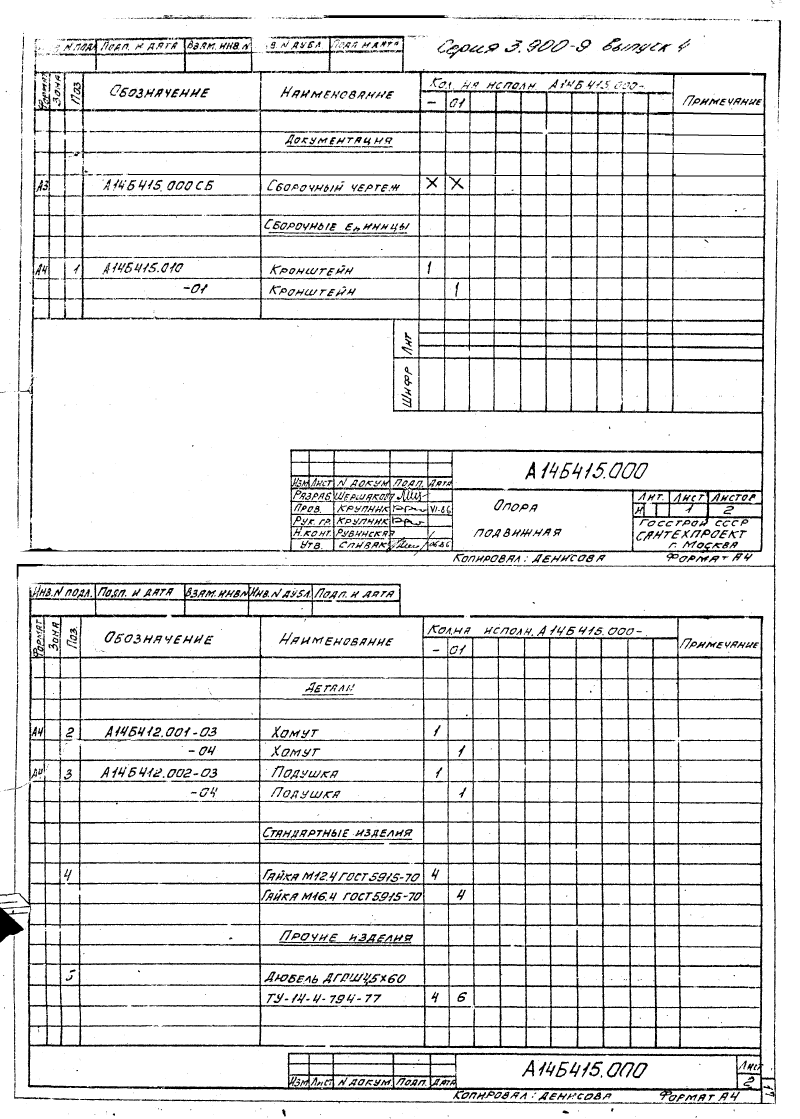 Серия 3.900-9 выпуск 4
N подл Подп. и дата Взам. инв. N в. N дубл. Подп и дата
Формат Зона Поз Обозначение Наименование Кол на исполн А14Б415.000- Примечание
- 01
Документация
А3 А14Б415.000СБ Сборочный чертеж X X
Сборочные единицы
А4 1 А14Б415.010 Кронштейн 1
-01 Кронштейн 1
Лит
Шифр
А14Б415.000
Изм Лист N докум Подп. Дата
Разраб Шершаков
Пров. Крупник VI-86
Рук. гр. Крупник
Н.конт. Рубинская
Утв. Спивак 06.86
Опора
подвижная
Лит. Лист Листов
И 1 2
Госстрой СССР
Сантехпроект
г. Москва
Копировал: Денисова Формат А4
Инв. N подл. Подп. и дата Взам. инв N Инв. N дубл. Подп. и дата
Формат Зона Поз. Обозначение Наименование Кол.на исполн. А14Б415.000- Примечание
- 01
Детали
А4 2 А14Б412.001-03 Хомут 1
-04 Хомут 1
А4 3 А14Б412.002-03 Подушка 1
-04 Подушка 1
Стандартные изделия
4 Гайка М12.4 ГОСТ 5915-70 4
Гайка М16.4 ГОСТ 5915-70 4
Прочие изделия
5 Дюбель ДГПШ4,5х60
ТУ-14-4-794-77 4 6
А14Б415.000
Лист
2
Изм Лист N докум. Подп. Дата
Копировал: Денисова Формат А4